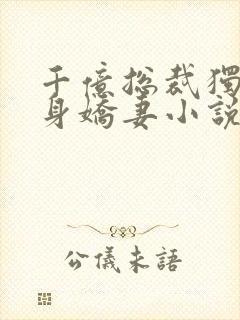 千億總裁獨
身嬌妻小説
公儀未語